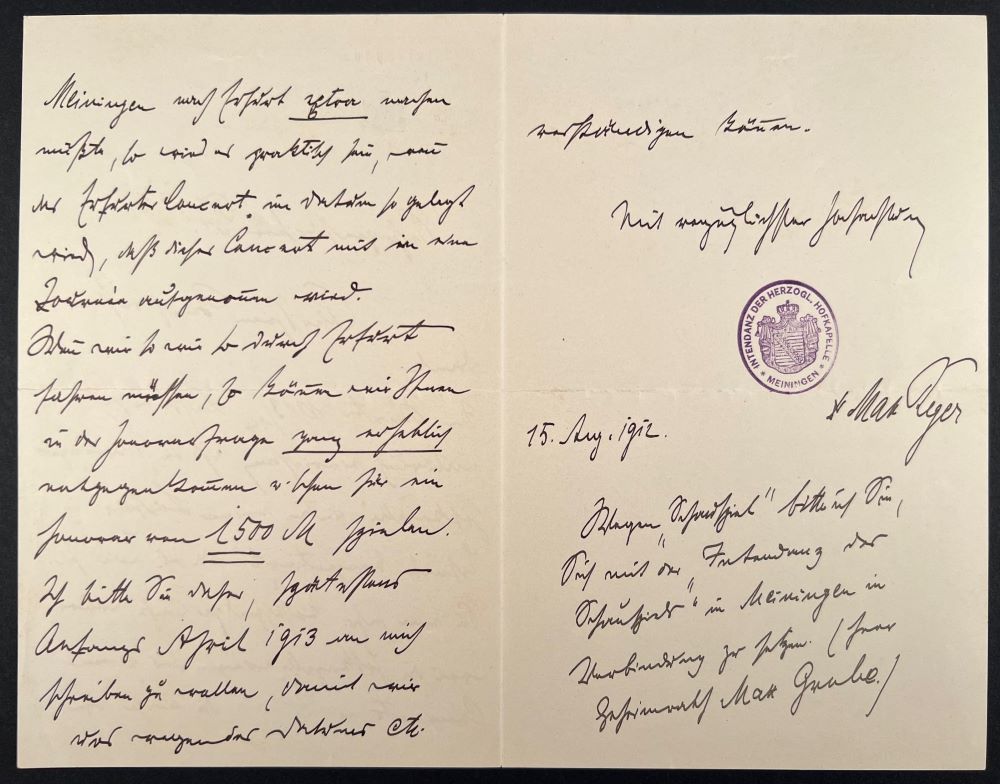 Meiningen nach Erfurt extra machen
müßte, so wird es praktisch sein, wenn
das Erfurter Concert im Datum so gelegt
wird, daß dieses Concert mit in eine
Tournée aufgenommen wird.
Wenn wir so wie so durch Erfurt
fahren müssen, so können wir Ihnen
in der Honorarfrage ganz erheblich
entgegenkommen u. schon für ein
Honorar von 1500 M spielen.
Ich bitte Sie daher, spätestens
Anfangs April 1913 an mich
schreiben zu wollen, damit wir
uns wegen des Datums etc.
verständigen können.
Mit vorzüglichster Hochachtung
INTENDANZ DER HERZOGL. HOFKAPELLE
* MEININGEN *
Dr Max Reger
15. Aug. 1912.
Wegen „Schauspiel" bitte ich Sie,
Sich mit der „Intendanz des
Schauspiels" in Meiningen in
Verbindung zu setzen. (Herr
Geheimrath Max Grube.)